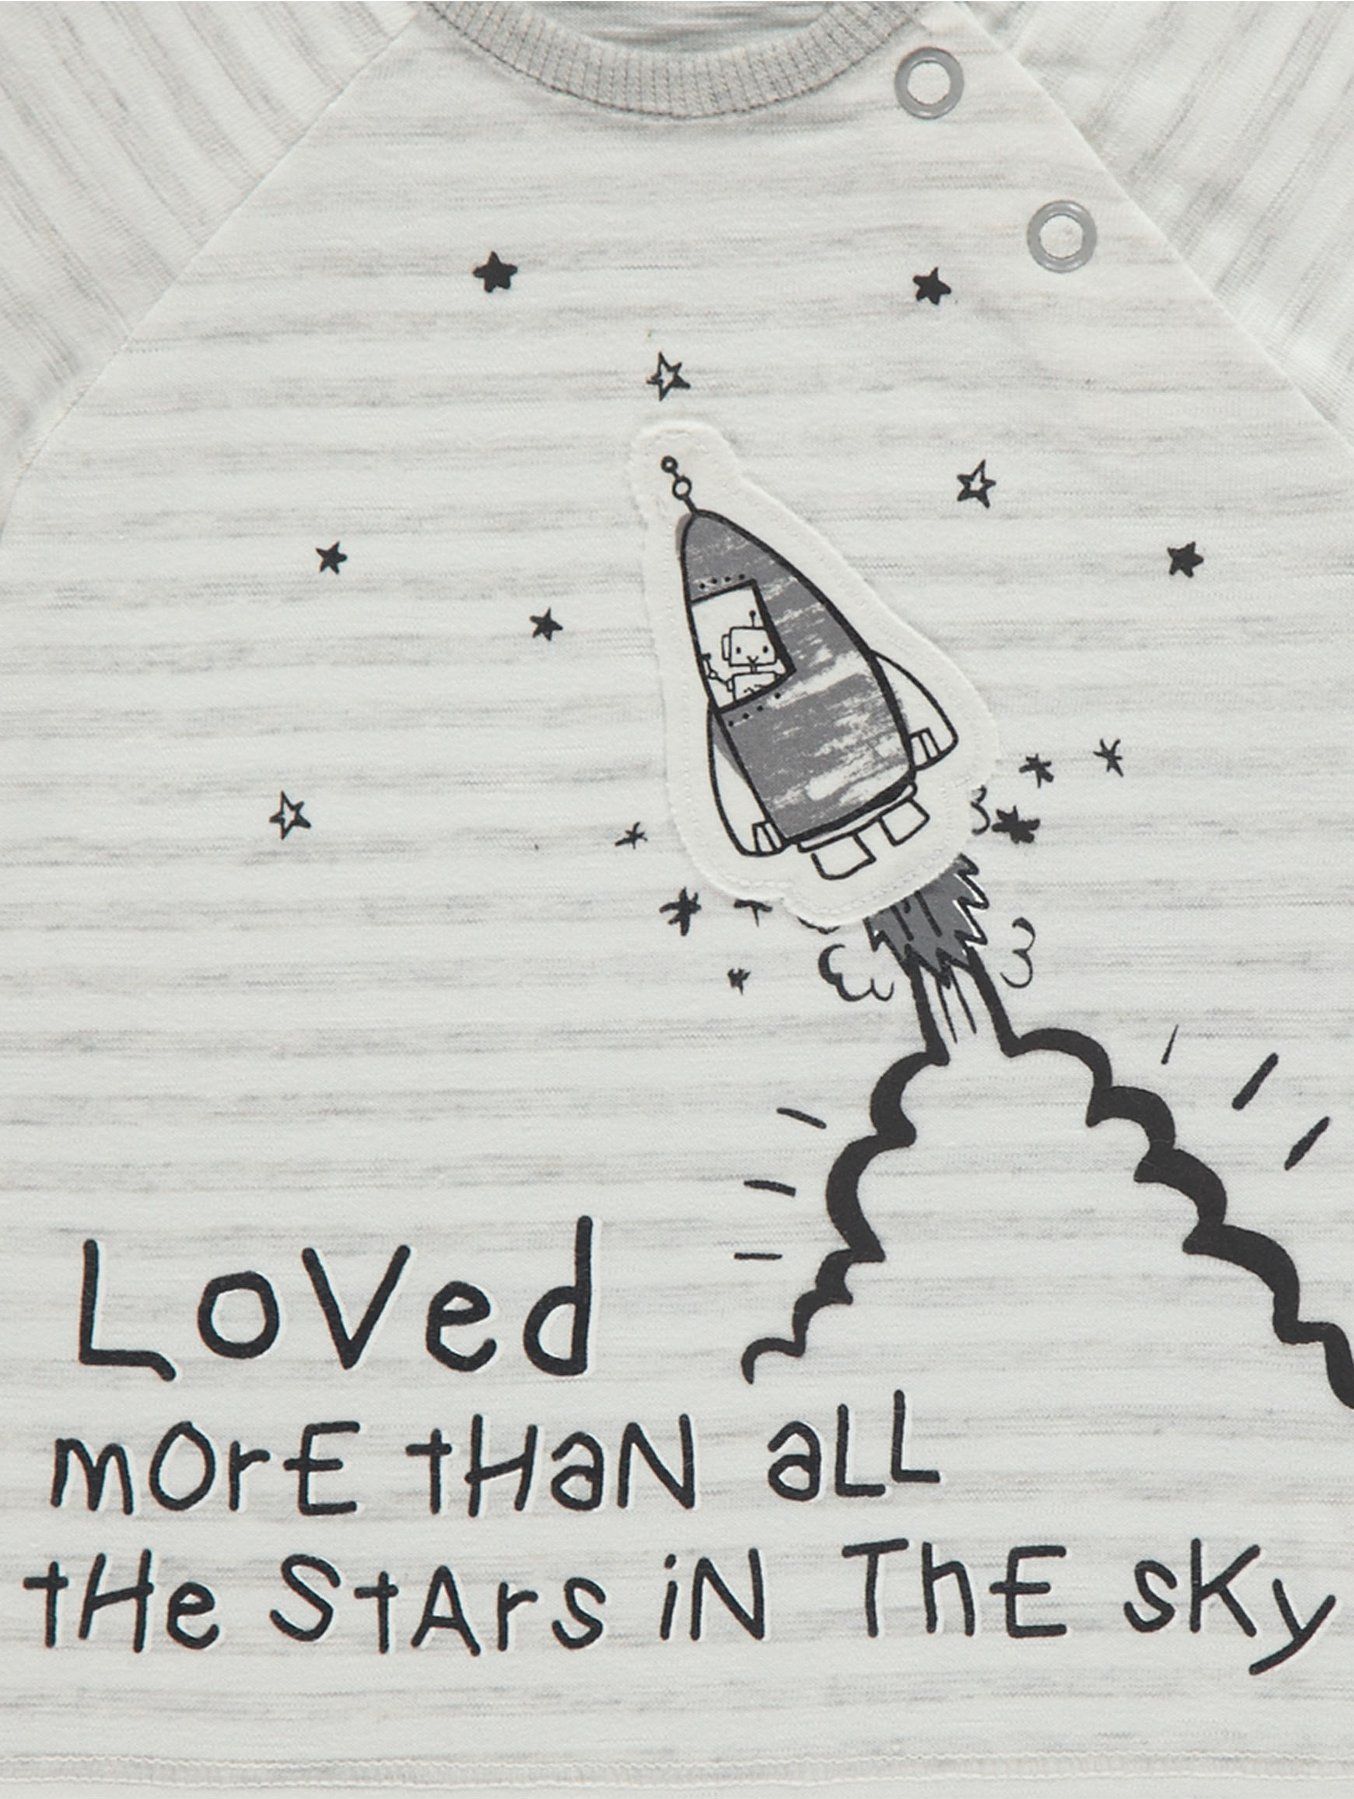 LoVed
mOrE tHaN aLL
tHe StArs iN ThE sKy